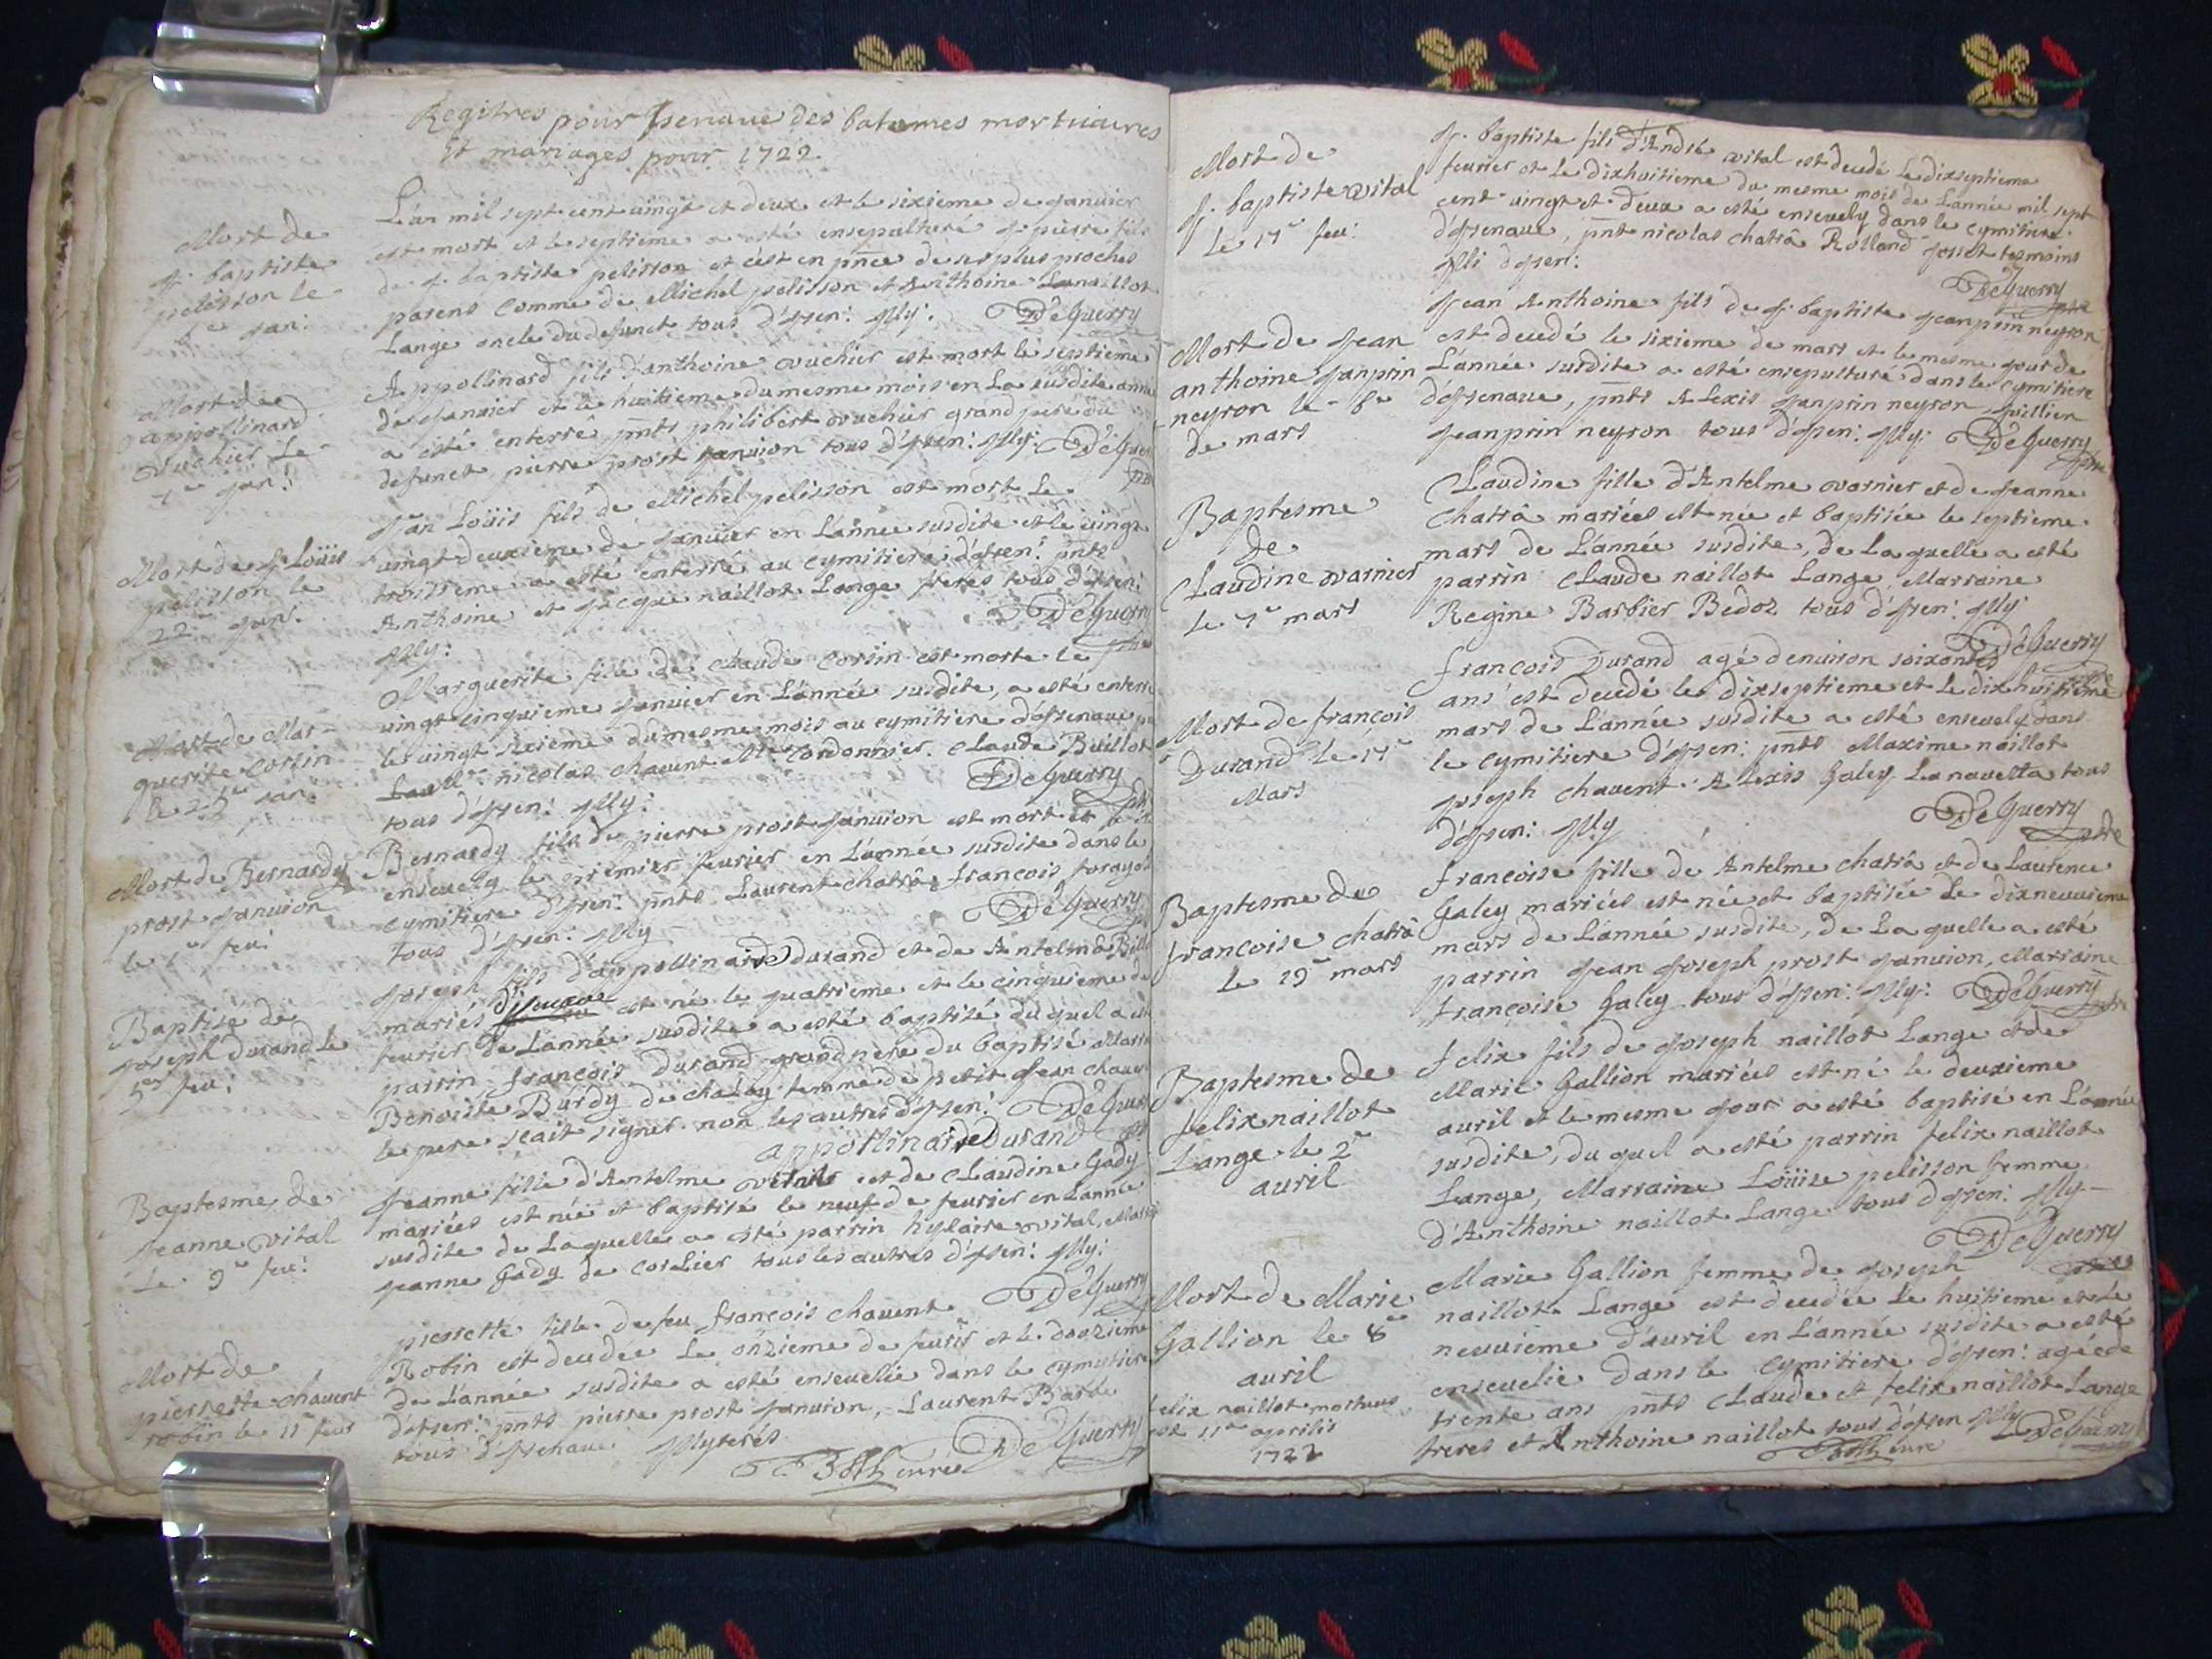 Regitres pour Isenave des batemes mortuaires
Et mariages pour 1722.
Mort de
j. baptiste
pelisson le
6e jan:
L'an mil sept cent vingt et deux et le sixieme de janvier
est mort et le septieme a esté ensepulturé j. pierre fils
de j. baptiste pelisson et c'est en pnce de ses plus proches
parens comme de Michel pelisson et Anthoine naillot
Lange oncle du defunct tous d'Isen: Illy: DeGuerry
Mort de
appollinard
vuchier Le
7e jan:
Appollinard fils d'anthoine vuchier est mort le septieme
de janvier et le huitieme du mesme mois en La susdite année
a esté enterré pnts philibert vuchier grand pere du
defunct, pierre prost janvion tous d'Isen: Illy: DeGuer
Mort de j. Loüis
pelisson le
22e jan:
jean Loüis fils de Michel pelisson est mort Le
vingt deuxieme de janvier en L'année susdite et le vingt
troisieme a esté enterré au cymitiere d'Isen: pnts
Anthoine et jacque naillot Lange freres tous d'Isen:
Illy: DeGuerry
Mort de Mar-
guerite Corsin
le 25e jan:
Marguerite fille de Claude Corsin est morte le
vingt cinquieme janvier en L'année susdite, a esté enterré
le vingt sixieme du mesme mois au cymitiere d'Isenave
nicolas chavent Mre Cordonnier, Claude Buillot
tous d'Isen: Illy: DeGuerry
Mort de Bernardy
prost janvion
le 1er fev:
Bernardy fils de pierre prost janvion est mort et
ensevely le premier fevrier en L'année susdite dans le
cymitiere d'Isen: pnts Laurent chatrâ, francois
tous d'Isen: Illy DeGuerry
Baptise de
joseph durand Le
5e fev:
joseph fils d'appollinard durand et de Antelma
mariés est né le quatrieme et le cinquieme de
fevrier de L'année susdite a esté baptisé du quel a esté
parrin françois durand grand pere du baptisé Marr
Benoiste Burdy de chaley femme de petit jean chaven
le pere sçait signer non les autres d'Isen: DeGuer
appollinard Durand
Baptesme de
jeanne vital
Le 9e fev:
jeanne fille d'Antelme vital et de Claudine Gady
mariées est née et baptisé le neuf de fevrier en L'année
susdite de Laquelle a esté parrin hylaire vital, Marr
jeanne Gady de Corlier tous les autres d'Isen: Illy:
DeGuerry
Mort de
pierrette chavent
robin le 11e fevr
pierrette fille de feu françois chavent
Robin est decedée Le onzieme de fevrir et le douzieme
de L'année susdite a esté ensevelie dans le cymitiere
d'Isen: pnts pierre prost janvion, Laurent
tous d'Isenave Illyterés DeGuerry
Mort de
j. baptiste vital
Le 17e fev:
j. baptiste fils d'André vital est decedé Le dixseptieme
fevrier et Le dixhuitieme du mesme mois de L'année mil sept
cent vingt et deux a esté ensevely dans le cymitiere
d'Isenave, pnts nicolas chatrâ Rolland josset tesmoins
Illi d'Isen: DeGuerry
Mort de jean
anthoine janprin
neyron le 6e
de mars
jean Anthoine fils de j. baptiste jeanprin neyron
est decedé le sixieme de mars et le mesme jour de
L'année susdite a esté ensepulturé dans le cymitiere
d'Isenave, pnts Alexis janprin neyron, juillien
jeanprin neyron tous d'Isen: Illy: DeGuerry
Baptesme
de
Claudine varnier
Le 7e mars
Claudine fille d'Antelme varnier et de jeanne
Chatrâ mariées est née et baptisée le septieme
mars de L'année susdite, de Laquelle a esté
parrin Claude naillot Lange, Marraine
Regine Barbier Bedoz tous d'Isen: Illy:
DeGuerry
Mort de françois
Durand Le 17e
Mars
françois Durand agé d'environ soixantes
ans est decedé le dixseptieme et Le dixhuitieme
mars de L'année susdite a esté ensevely dans
le cymitiere d'Isen: pnts Maxime naillot
joseph chavent Alexis Galey Lanavetta tous
d'Isen: Illy DeGuerry
Baptesme de
francoise chatrâ
Le 19e mars
francoise fille de Antelme chatrâ et de Laurence
Galey mariées est née et baptisée Le dixneuvieme
mars de L'année susdite, de Laquelle a esté
parrin jean joseph prost janvion, Marraine
françoise Galey tous d'Isen: Illy: DeGuerry
Baptesme de
felix naillot
Lange le 2e
avril
felix fils de joseph naillot Lange et de
Marie Gallion mariées est né le deuxieme
avril et le mesme jour a esté baptisé en L'année
susdite, du quel a esté parrin felix naillot
Lange, Marraine Loüise pelisson femme
d'Anthoine naillot Lange tous d'Isen: Illy
DeGuerry
Mort de Marie
Gallion le 8e
avril
felix naillot mortuus
est 11a aprilis
1722
Marie Gallion femme de joseph
naillot Lange est decedée Le huitieme et Le
neuvieme d'avril en L'année susdite a esté
ensevelie dans le cymitiere d'Isen: agée de
trente ans pnts Claude et felix naillot Lange
freres et Anthoine naillot tous d'Isen Illy DeGuerry